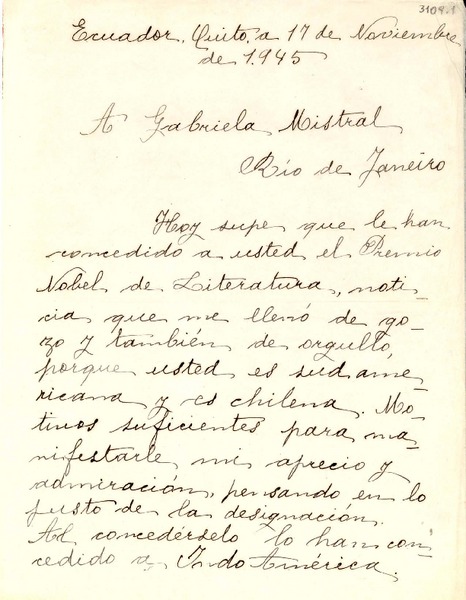 3109.1
Ecuador, Quito, a 17 de Noviembre
de 1.945
A Gabriela Mistral
Río de Janeiro
Hoy supe que le han
concedido a usted el Premio
Nobel de Literatura, noti
cia que me llenó de go-
zo y también de orgullo,
porque usted es sudame
ricana y es chilena. Mo-
tivos suficientes para ma
nifestarle mi aprecio y
admiración, pensando en lo
justo de la designación.
Al concedérselo lo han con-
cedido a Indo América.